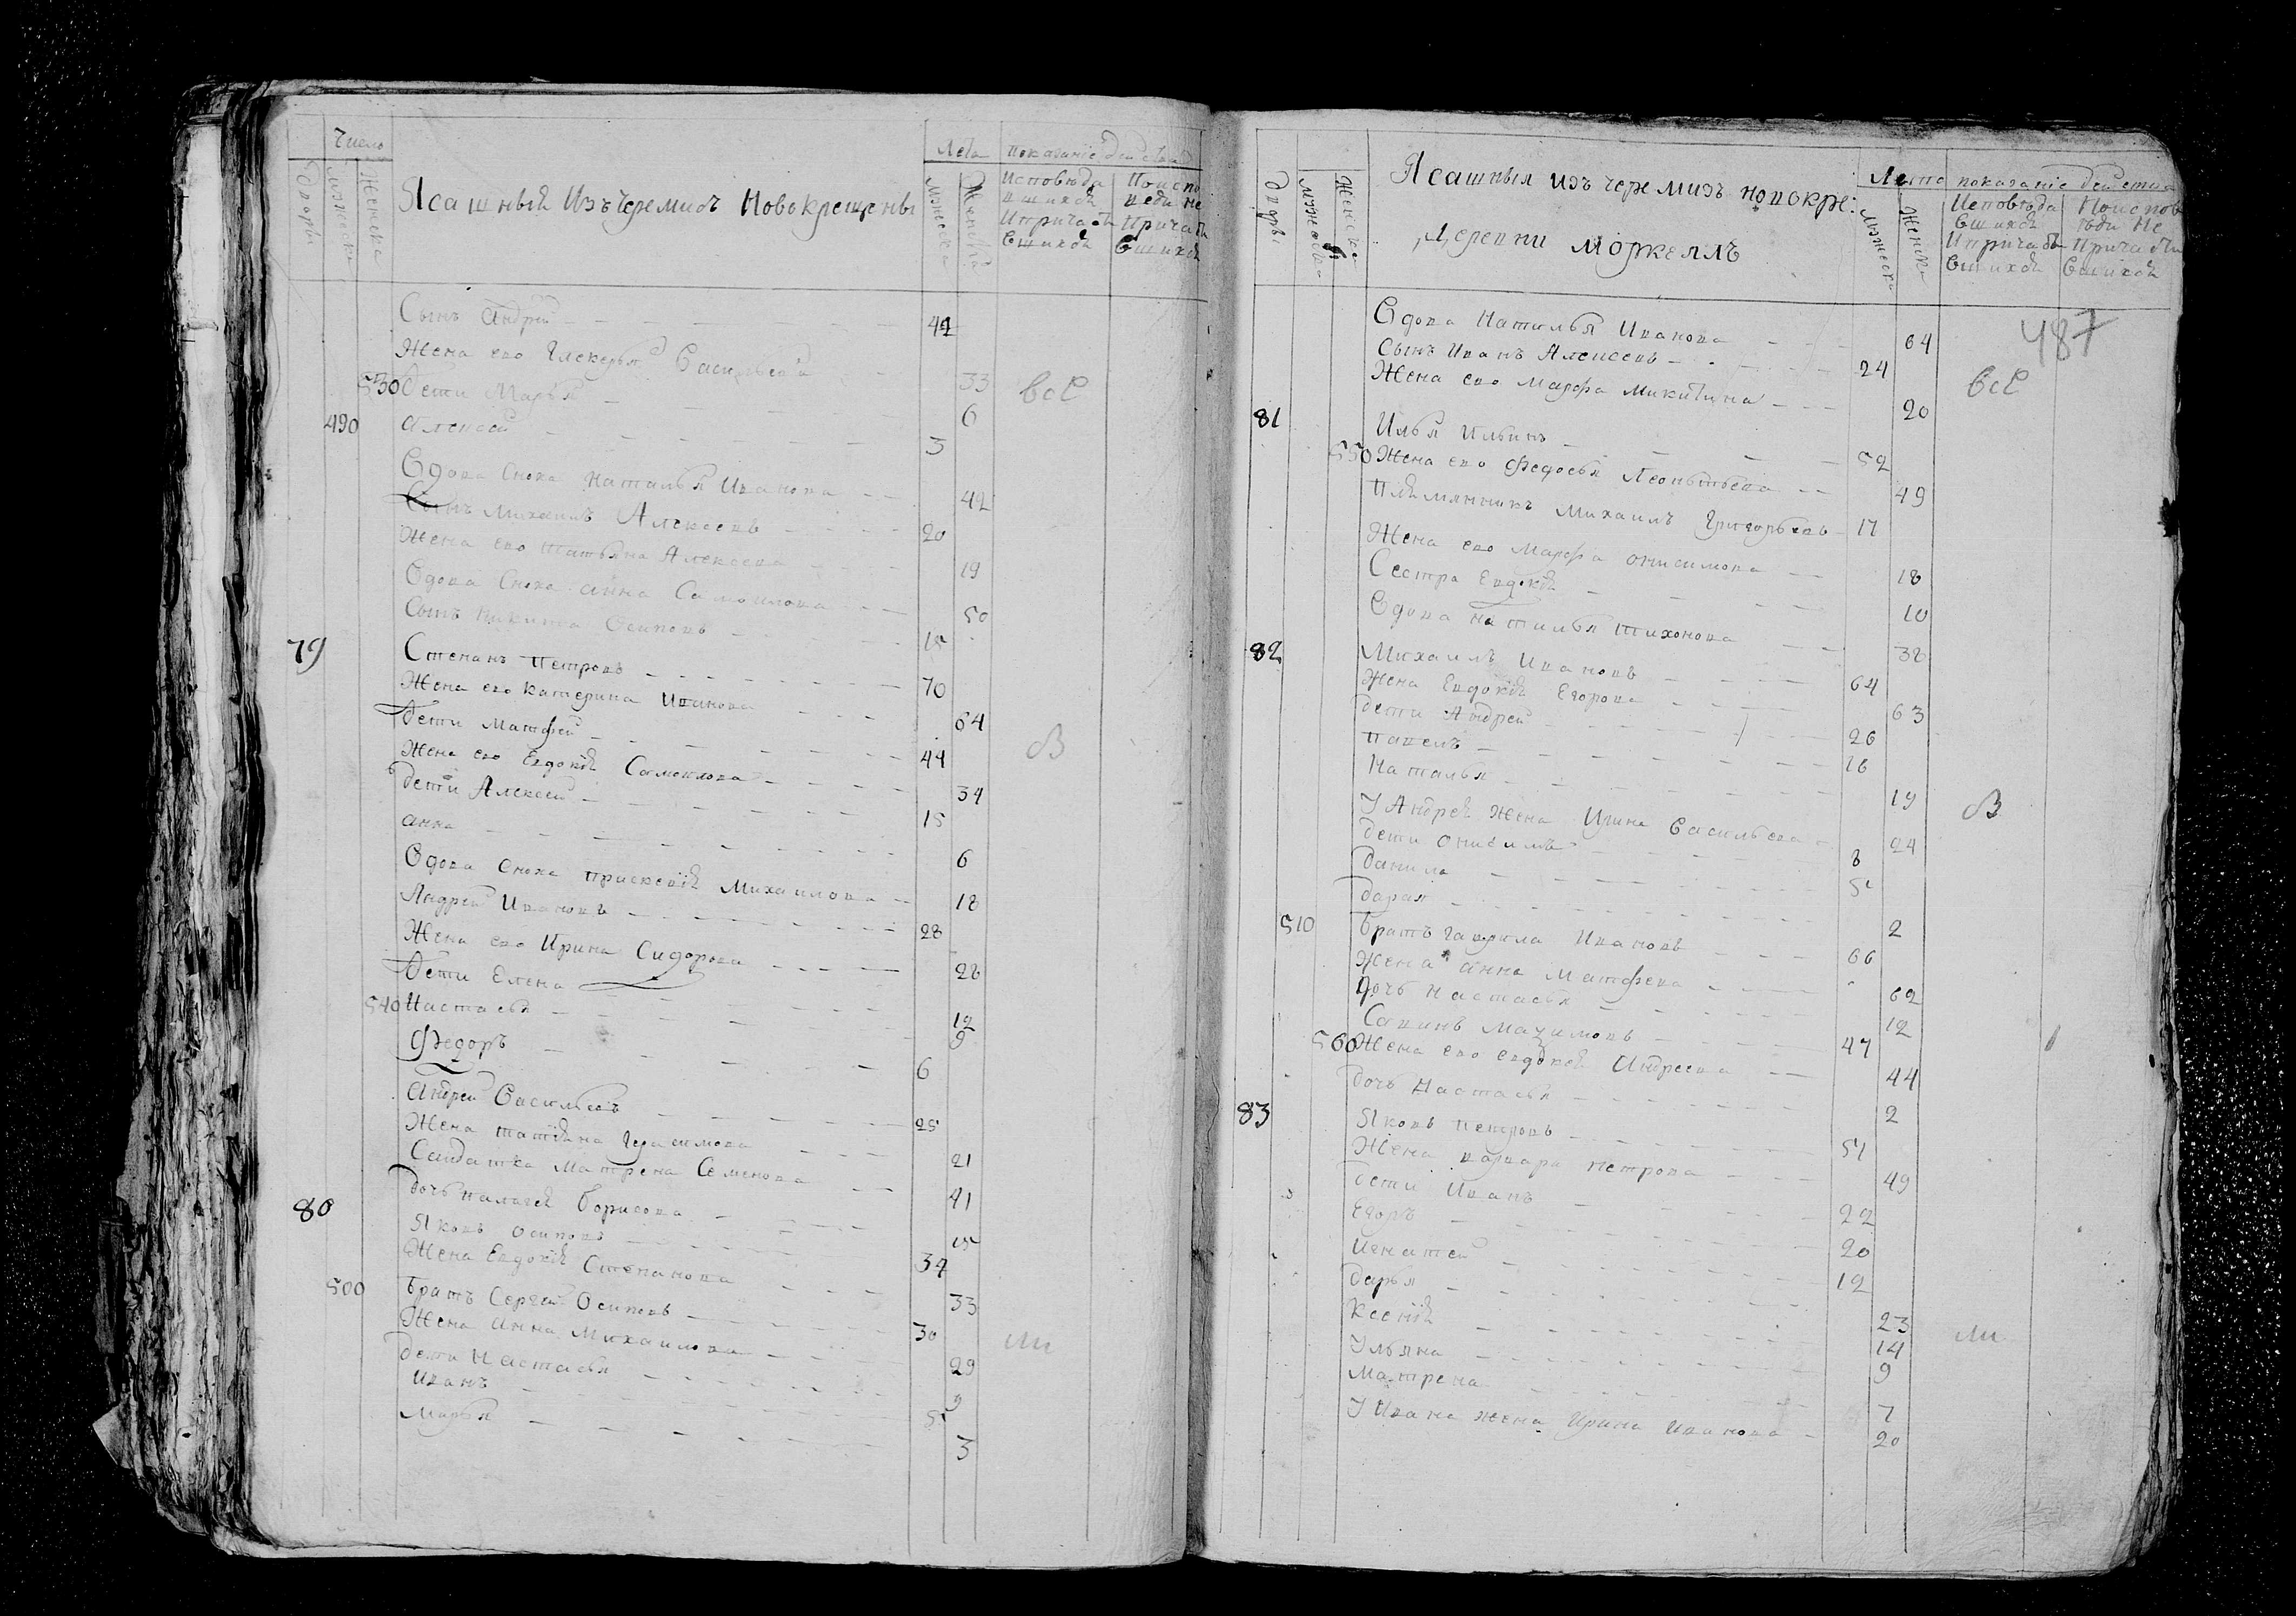 Число
Дворы
Мужеска
Женска
Ясашныя Изъ черемисъ Новокрещены
Лета
показание действа
Мужеска
Женска
Исповеда
вшихся
И причасти
вшихся
По испо
веди не
Причасти
вшихся
Сынъ Андрей 42
Жена ево Гликерья Васильева 33
530 Дети Марья 6
все
490 Алексей 3
Вдова Сноха Наталья Иванова 42
Сынъ Михаилъ Алексеевъ 20
Жена ево Татьяна Алексеева 19
Вдова Сноха Анна Самоилова 50
Сынъ Никита Осиповъ 15
79 Степанъ Петровъ 70
Жена ево Катерина Иванова 64
Дети Матфей 44
Жена ево Евдокия Самоилова 34
Дети Алексей 15
Анна 6
Вдова Сноха Прасковия Михаилова 18
Андрей Ивановъ 28
Жена ево Ирина Сидорова 28
Дети Елена 12
540 Настасья 9
Федоръ 6
Андрей Васильевъ 25
Жена Татияна Герасимова 21
Салдатка Матрена Семенова 41
Дочь Палагея Борисова 15
80 Яковъ Осиповъ 34
Жена Евдокия Степанова 33
500 Братъ Сергей Осиповъ 30
Жена Анна Михаилова 29
Дети Настасья 9
Иванъ 5
Марья 3
Дворы
Мужеска
Женска
Ясашныя изъ черемизъ новокре:
Деревни Моркеялъ
Лета
показание действа
Мужеска
Женска
Исповеда
вшихся
И причасти
вшихся
По испов
еди Не
Причасти
вшихся
487
Вдова Наталья Иванова 64
Сынъ Иванъ Алексеевъ 24
все
Жена ево Марфа Микитина 20
81 Илья Ильинъ 52
550 Жена ево Федосья Леонтьева 49
Племянникъ Михаилъ Григорьевъ 17
Жена ево Марфа Онисимова 18
Сестра Евдокия 10
Вдова Наталья Тихонова 38
82 Михаилъ Ивановъ 64
Жена Евдокия Егорова 63
Дети Андрей 26
Павелъ 16
Наталья 19
У Андрея Жена Ирина Васильева 24
Дети Онисимъ 8
Данила 5
Дарья 2
510 Братъ Гаврила Ивановъ 66
Жена Анна Матфеева 62
Дочь Настасья 12
Савинъ Мазимовъ 47
560 Жена ево Евдокея Андреева 44
Дочь Настасья 2
83 Яковъ Петровъ 51
Жена Варвара Петрова 49
Дети Иванъ 22
Егоръ 20
Игнатей 12
Дарья 23
Ксения 14
Ульяна 9
Матрена 7
У Ивана жена Ирина Иванова 20